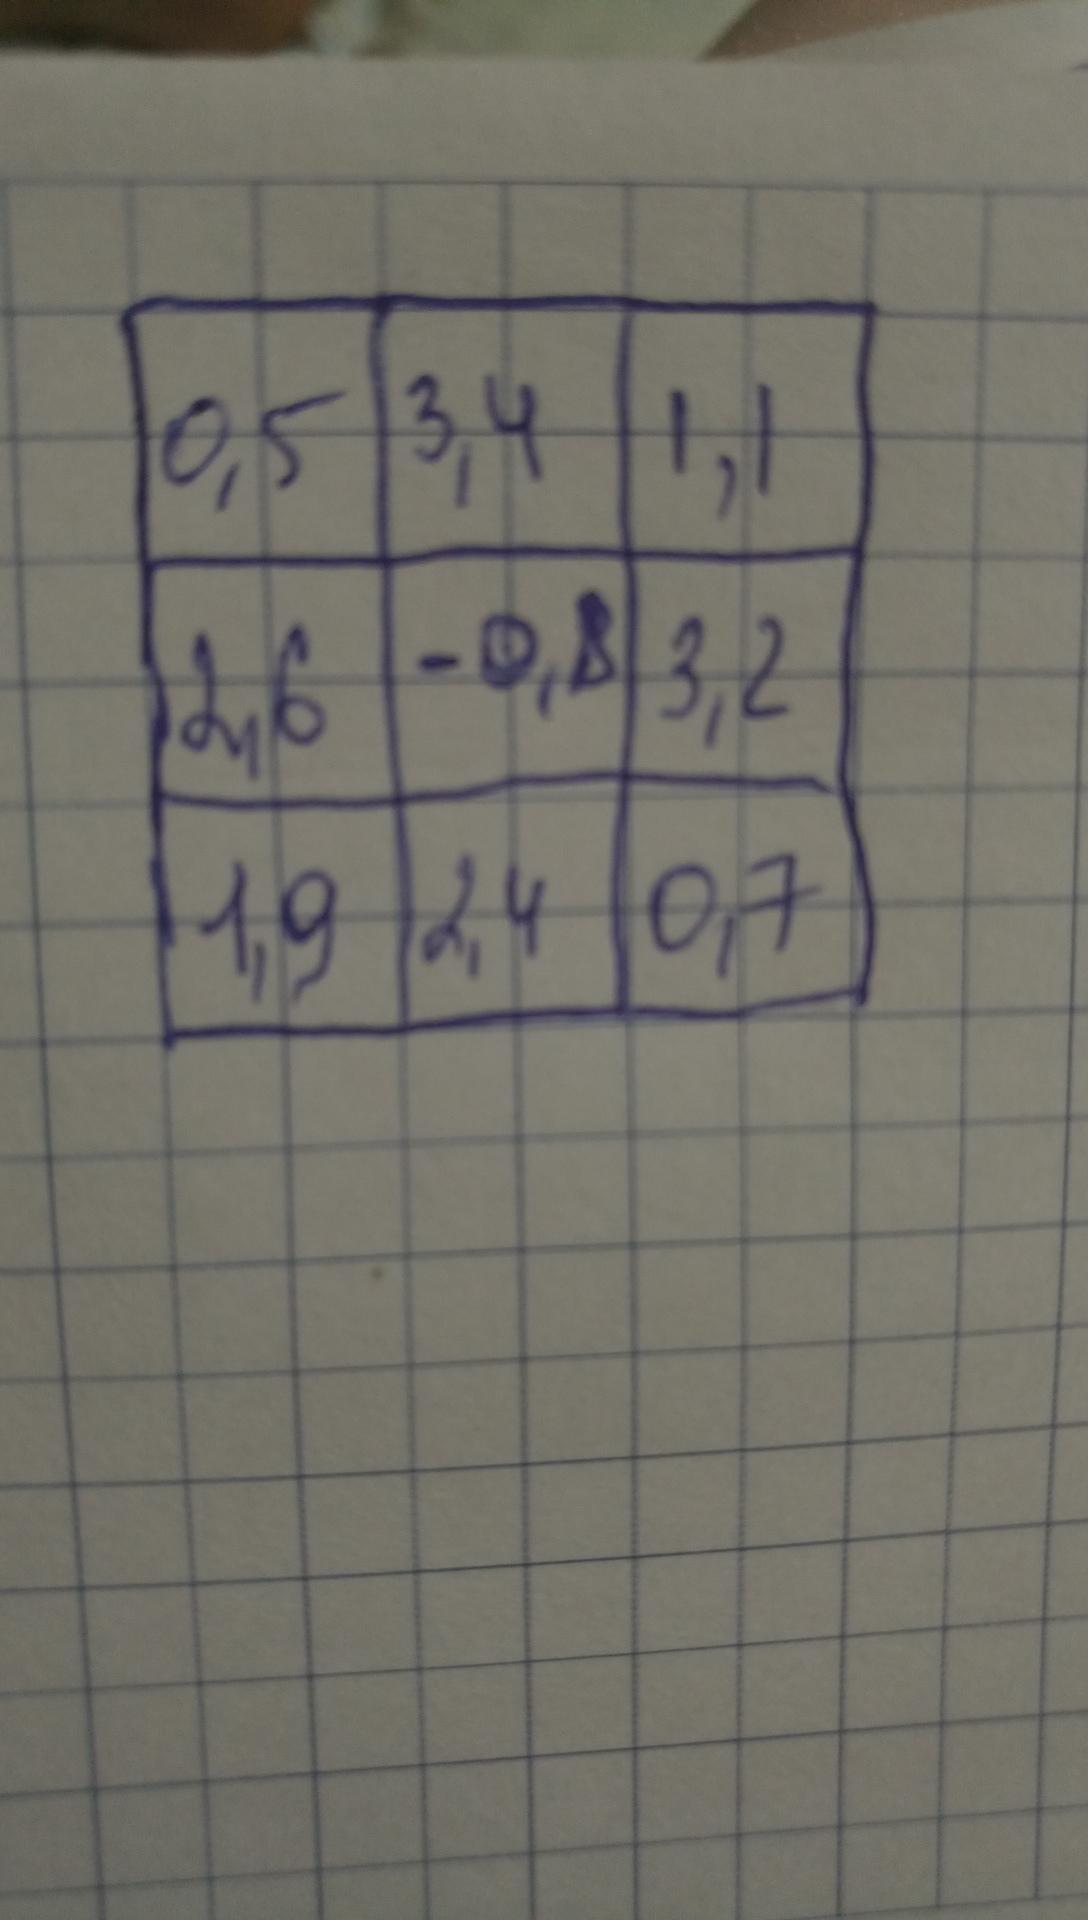 0,5 3,4 1,1
2,6 -0,8 3,2
1,9 2,4 0,7